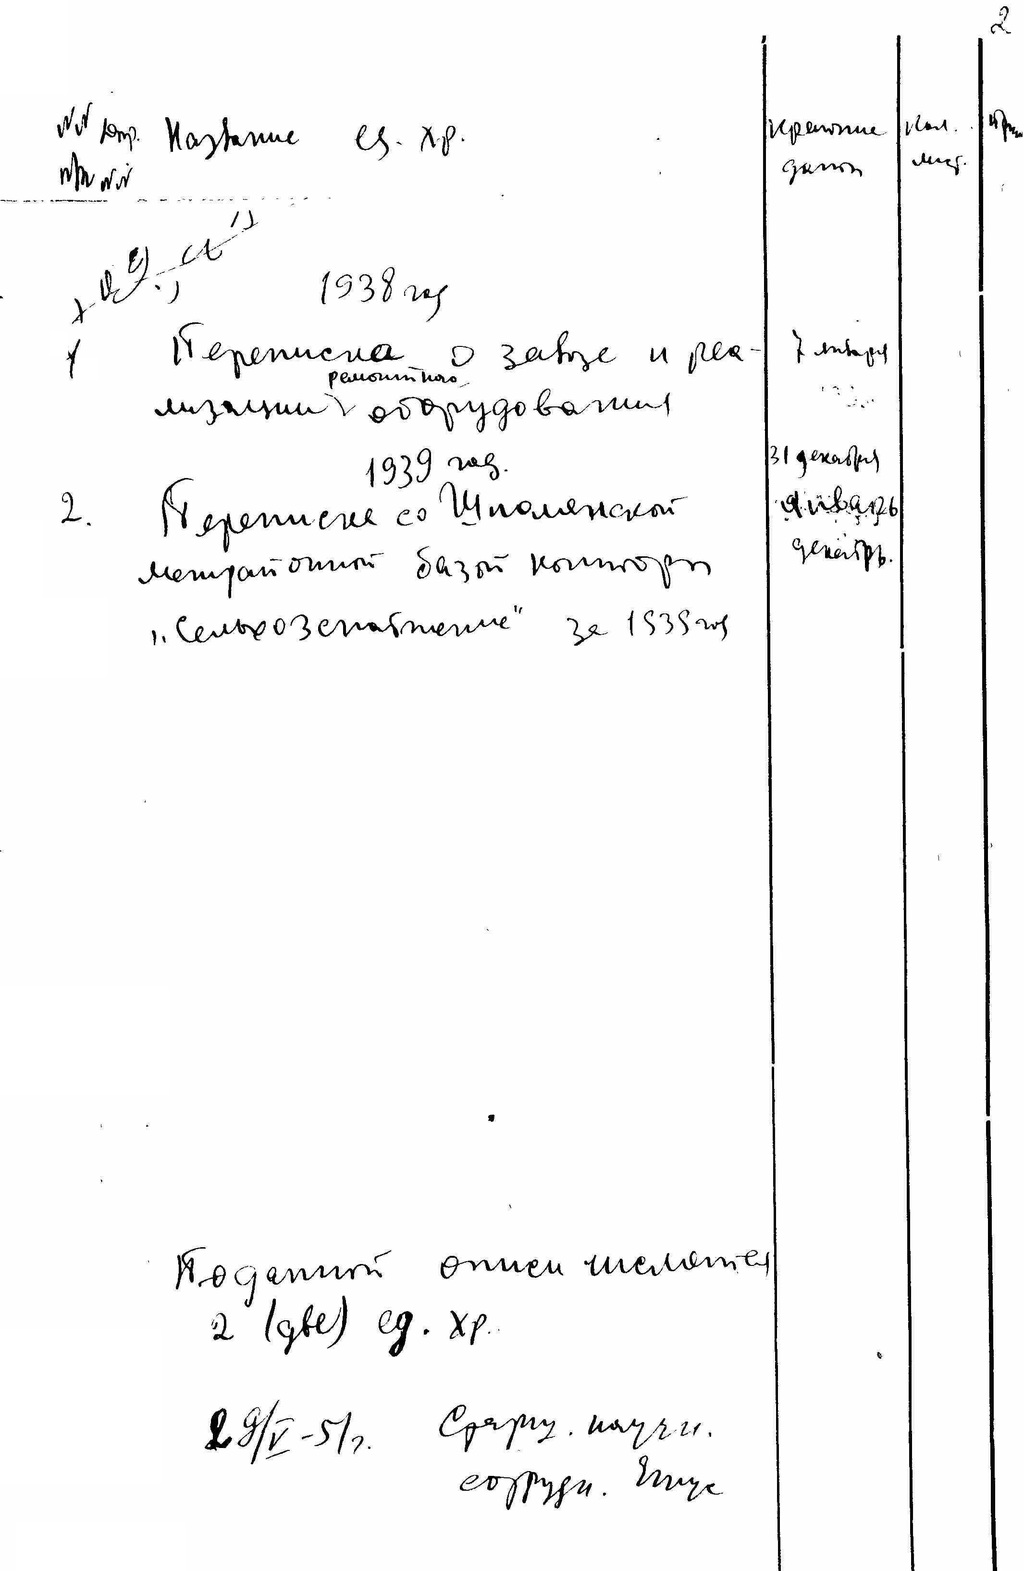 2
№№ Название ед. хр. Крайние Кол.
№№ даты лист.
1938 год
1 Переписка о завозе и реа- 7 января
ремонтного
лизации оборудования
31 декабря
1939 год.
2. Переписка со Шполянской январь
межрайонной базой конторы декабрь.
„Сельхозснабжение" за 1939 год
По данной описи числятся
2 (две) ед. хр.
29/V-51г. научн.
сотрудн.